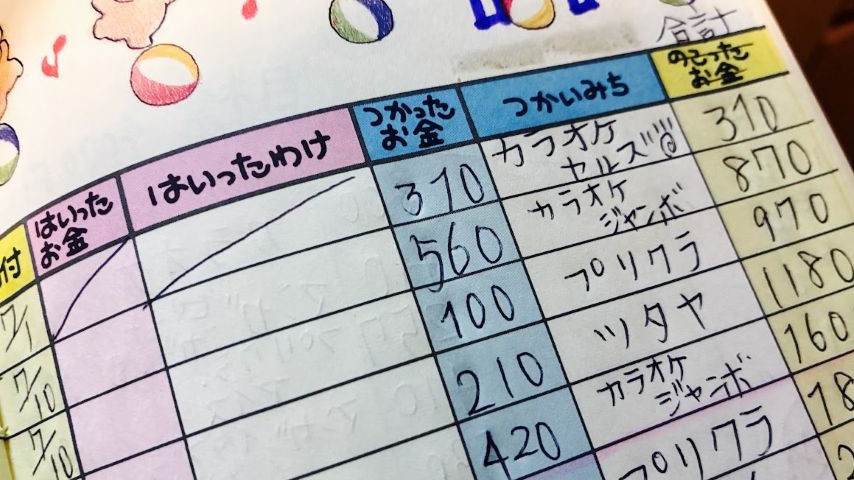 合計
付 はいったお金 はいったわけ つかったお金 つかいみち のこったお金
7/1 310 カラオケ 310
7/10 560 カラオケ ジャンボ 870
7/10 100 プリクラ 970
210 ツタヤ 1180
420 カラオケ ジャンボ 160
プリクラ 18